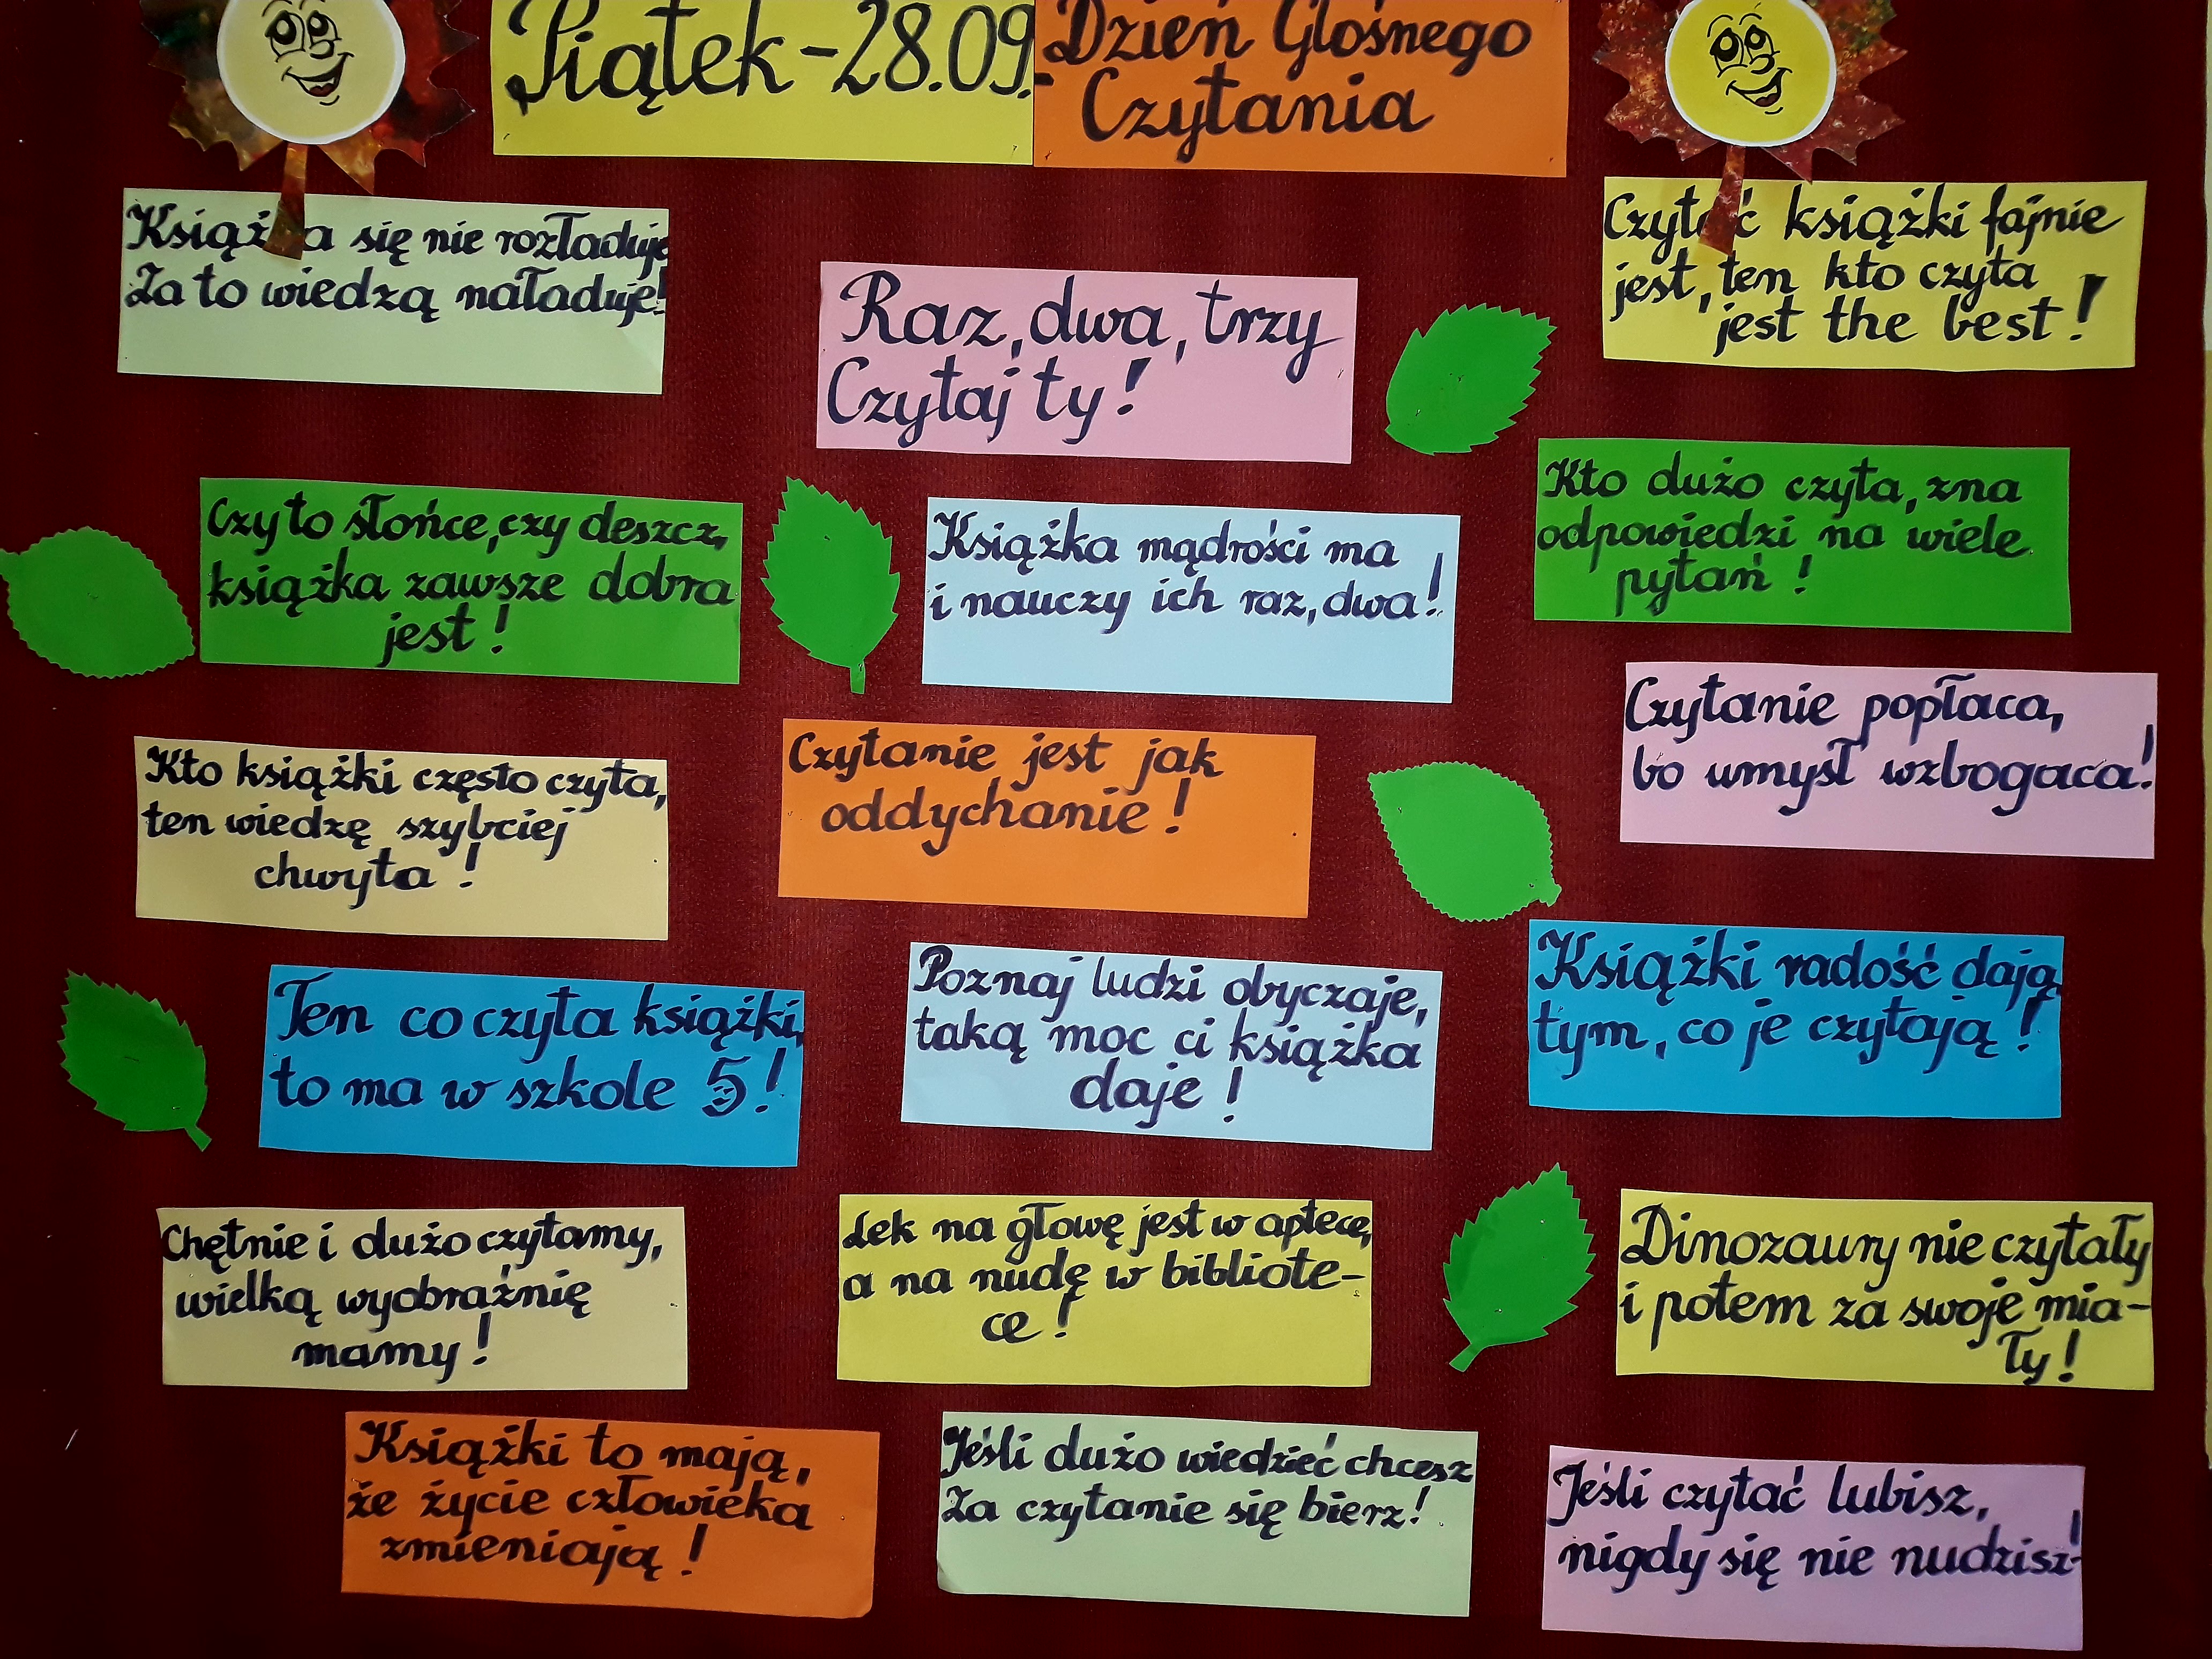 Piątek - 28.09.-
Dzień Głośnego
Czytania
Książka się nie rozładuje
Za to wiedzą naładuje!
Raz, dwa, trzy
Czytaj ty!
Czytać książki fajnie
jest, ten kto czyta
jest the best!
Czy to słońce, czy deszcz,
książka zawsze dobra
jest!
Książka mądrości ma
i nauczy ich raz, dwa!
Kto dużo czyta, zna
odpowiedzi na wiele
pytań!
Kto książki często czyta,
ten wiedzę szybciej
chwyta!
Czytanie jest jak
oddychanie!
Czytanie popłaca,
bo umysł wzbogaca!
Ten co czyta książki,
to ma w szkole 5!
Poznaj ludzi obyczaje,
taką moc ci książka
daje!
Książki radość dają
tym, co je czytają!
Chętnie i dużo czytamy,
wielką wyobraźnię
mamy!
Lek na głowę jest w aptece,
a na nudę w bibliote-
ce!
Dinozaury nie czytały
i potem za swoje mia-
ły!
Książki to mają,
że życie człowieka
zmieniają!
Jeśli dużo wiedzieć chcesz
Za czytanie się bierz!
Jeśli czytać lubisz,
nigdy się nie nudzisz!